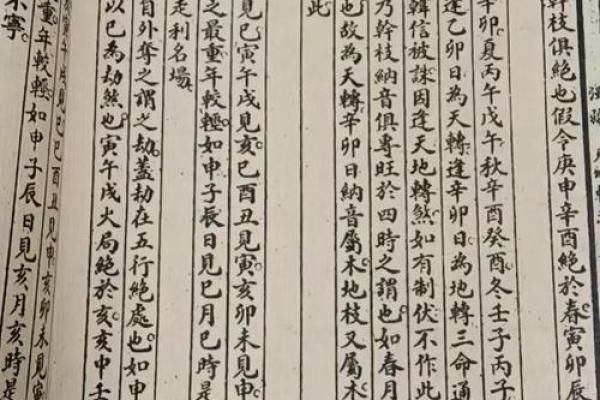 幹枝俱絕也假令庚申辛酉絕於春寅卯辰
辛卯夏丙午戊午秋辛酉癸酉冬壬子丙子
逢乙卯日為天轉逢辛卯日為地轉三命通
韓信被誅因逢天地轉煞如有制伏不作此
乃幹枝納音俱專旺於四時之謂也如春月
也故為天轉辛卯日納音屬木地枝又屬木
此
見巳寅午戌見亥巳酉丑見寅亥卯未見申
之最重年較輕如申子辰日見巳月巳時是
走利名場
自外奪之謂之劫蓋劫在五行絕處也如申
以巳為劫煞也寅午戌火局絕於亥亥申壬
寅午戌見巳巳酉丑見申亥卯未見寅
重年較輕如申子辰日見亥月亥時是
不寧